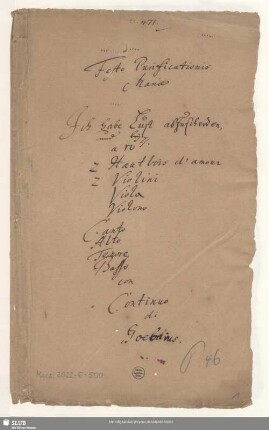 471.
Festo Purificationis
Mariae
Ich habe Lust abzuscheiden,
a
2 Hautbois d'amour
2 Violini
Viola
Violono
Canto
Alto
Tenore
Basso
con
Continuo
di
Goebelius.
46
Mus. 
SLUB